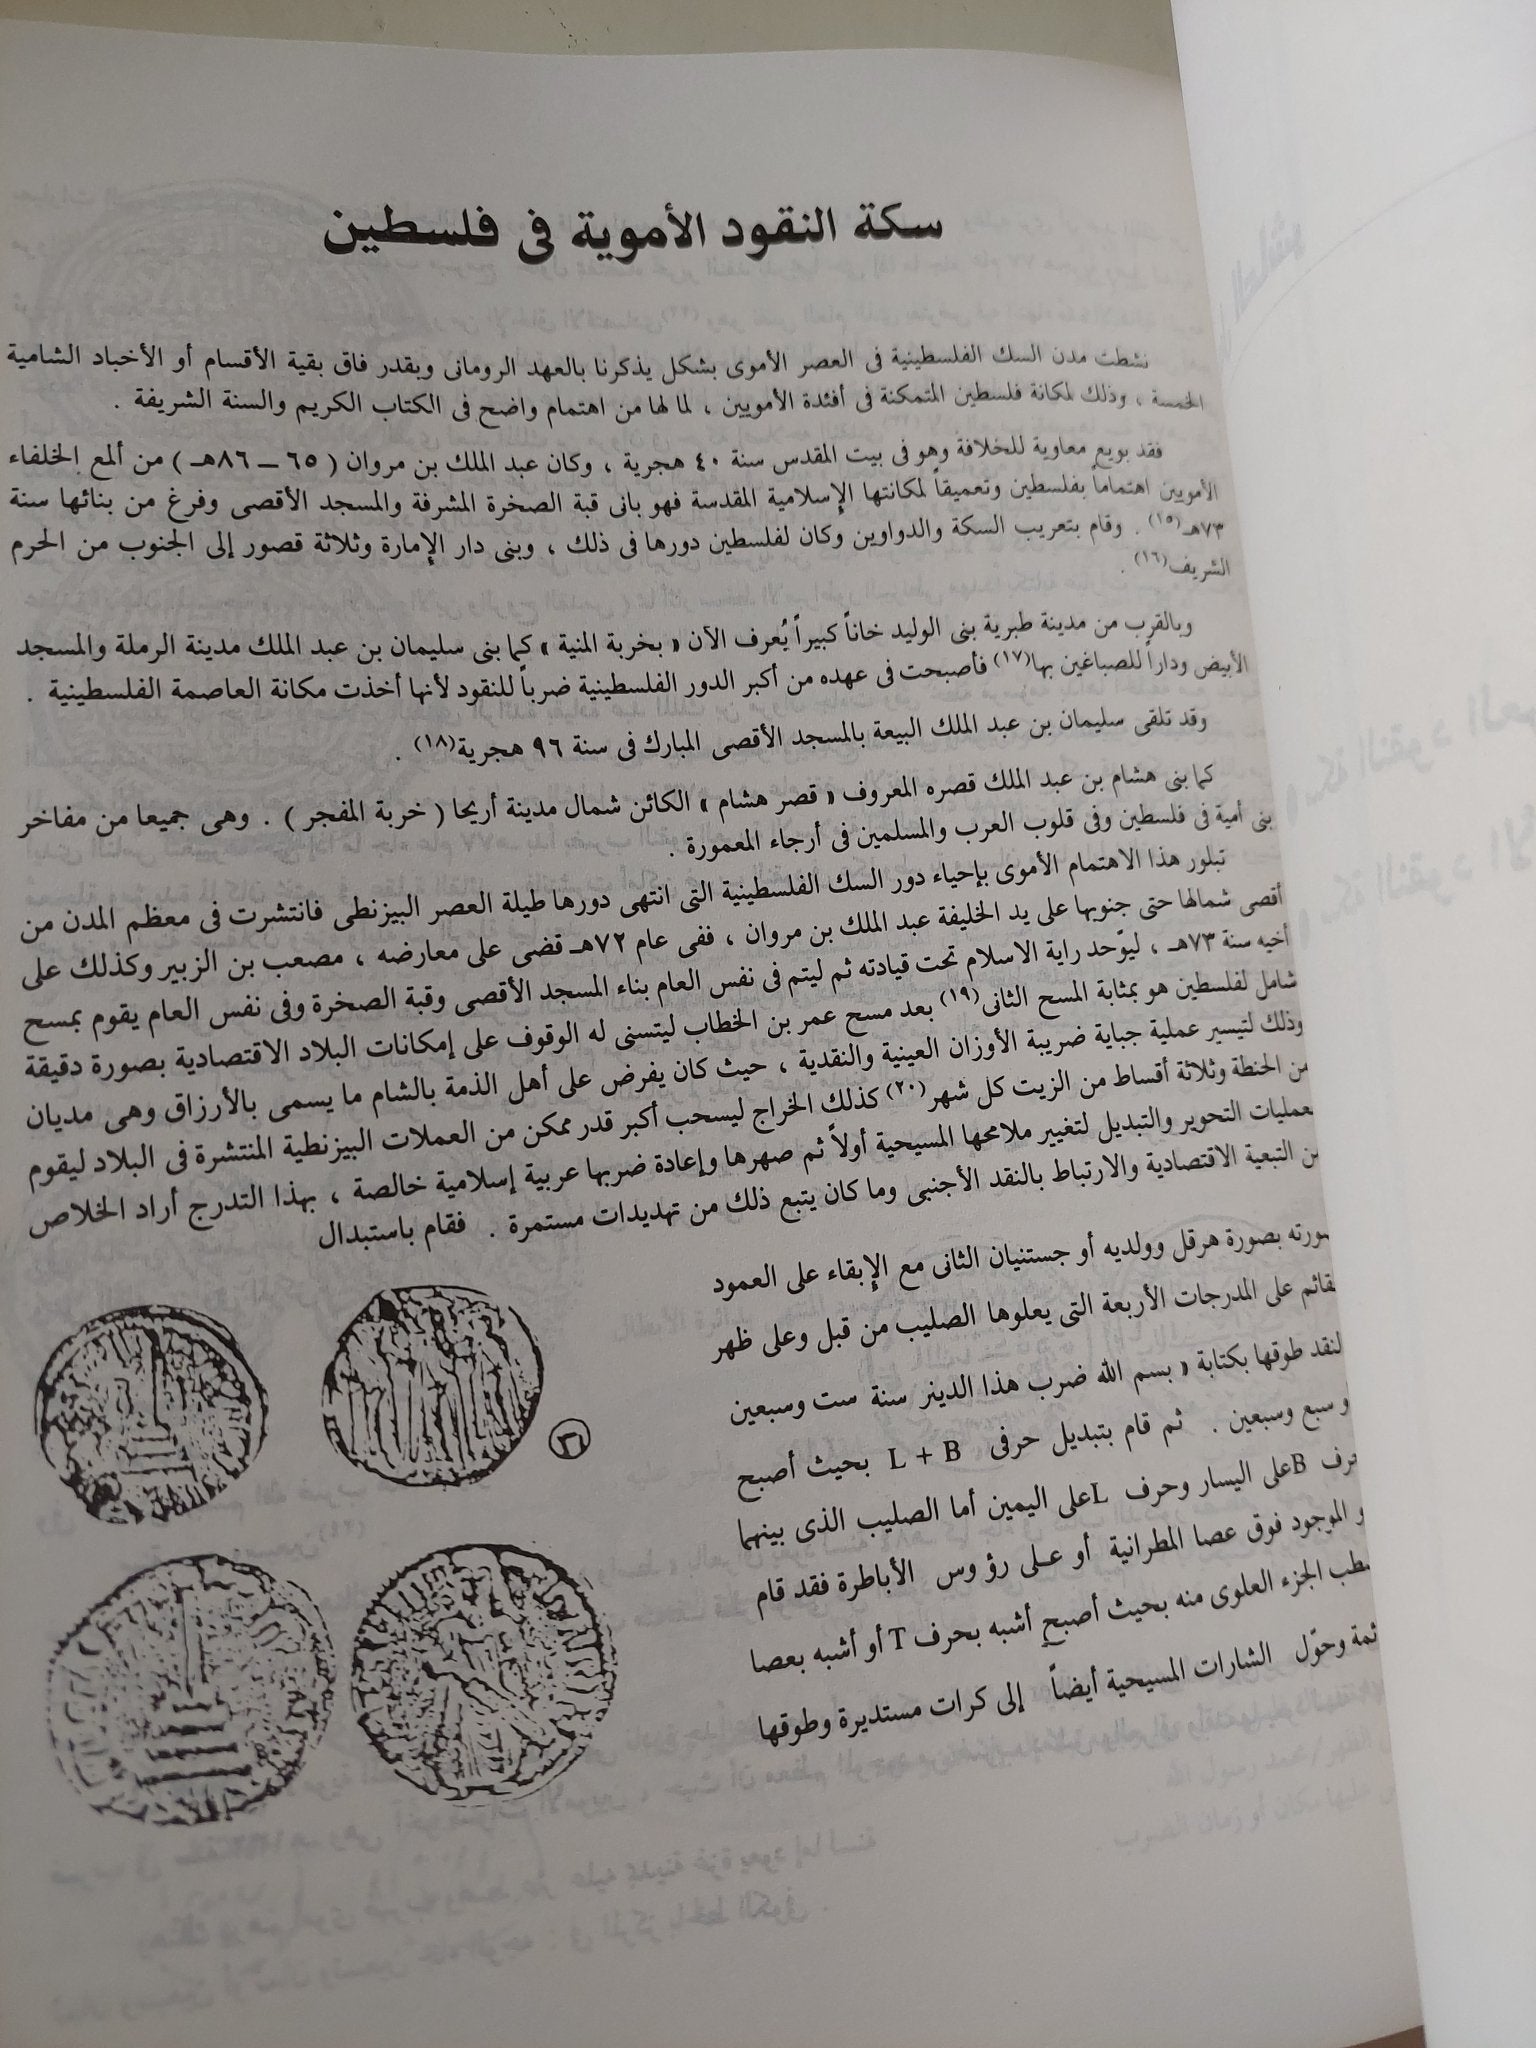 سكة النقود الأموية فى فلسطين
نشطت مدن السك الفلسطينية فى العصر الأموى بشكل يذكرنا بالعهد الرومانى وبقدر فاق بقية الأقسام أو الأخباد الشامية
الخمسة ، وذلك لمكانة فلسطين المتمكنة فى أفئدة الأمويين ، لما لها من اهتمام واضح فى الكتاب الكريم والسنة الشريفة .
فقد بويع معاوية للخلافة وهو فى بيت المقدس سنة ٤٠ هجرية ، وكان عبد الملك بن مروان ( ٦٥ ـ ٨٦هـ ) من ألمع الخلفاء
الأمويين اهتماماً بفلسطين وتعميقاً لمكانتها الإسلامية المقدسة فهو بانى قبة الصخرة المشرفة والمسجد الأقصى وفرغ من بنائها سنة
٧٣هـ(١٥) . وقام بتعريب السكة والدواوين وكان لفلسطين دورها فى ذلك ، وبنى دار الإمارة وثلاثة قصور إلى الجنوب من الحرم
الشريف(١٦) .
وبالقرب من مدينة طبرية بنى الوليد خاناً كبيراً يُعرف الآن « بخربة المنية » كما بنى سليمان بن عبد الملك مدينة الرملة والمسجد
الأبيض وداراً للصباغين بها(١٧) فأصبحت فى عهده من أكبر الدور الفلسطينية ضرباً للنقود لأنها أخذت مكانة العاصمة الفلسطينية .
وقد تلقى سليمان بن عبد الملك البيعة بالمسجد الأقصى المبارك فى سنة ٩٦ هجرية(١٨) .
كما بنى هشام بن عبد الملك قصره المعروف « قصر هشام » الكائن شمال مدينة أريحا ( خربة المفجر ) . وهى جميعا من مفاخر
بنى أمية فى فلسطين وفى قلوب العرب والمسلمين فى أرجاء المعمورة .
تبلور هذا الاهتمام الأموى بإحياء دور السك الفلسطينية التى انتهى دورها طيلة العصر البيزنطى فانتشرت فى معظم المدن من
أقصى شمالها حتى جنوبها على يد الخليفة عبد الملك بن مروان ، ففى عام ٧٢هـ قضى على معارضه ، مصعب بن الزبير وكذلك على
أخيه سنة ٧٣هـ ، ليوّحد راية الاسلام تحت قيادته ثم ليتم فى نفس العام بناء المسجد الأقصى وقبة الصخرة وفى نفس العام يقوم بمسح
شامل لفلسطين هو بمثابة المسح الثانى(١٩) بعد مسح عمر بن الخطاب ليتسنى له الوقوف على إمكانات البلاد الاقتصادية بصورة دقيقة
وذلك لتيسير عملية جباية ضريبة الأوزان العينية والنقدية ، حيث كان يفرض على أهل الذمة بالشام ما يسمى بالأرزاق وهى مديان
من الحنطة وثلاثة أقساط من الزيت كل شهر(٢٠) كذلك الخراج ليسحب أكبر قدر ممكن من العملات البيزنطية المنتشرة فى البلاد ليقوم
بعمليات التحوير والتبديل لتغيير ملامحها المسيحية أولاً ثم صهرها وإعادة ضربها عربية إسلامية خالصة ، بهذا التدرج أراد الخلاص
من التبعية الاقتصادية والارتباط بالنقد الأجنبى وما كان يتبع ذلك من تهديدات مستمرة . فقام باستبدال
صورته بصورة هرقل وولديه أو جستنيان الثانى مع الإبقاء على العمود
القائم على المدرجات الأربعة التى يعلوها الصليب من قبل وعلى ظهر
النقد طوقها بكتابة « بسم الله ضرب هذا الدينر سنة ست وسبعين
و سبع وسبعين . ثم قام بتبديل حرفى L + B بحيث أصبح
حرف B على اليسار وحرف L على اليمين أما الصليب الذى بينهما
و الموجود فوق عصا المطرانية أو على رؤ وس الأباطرة فقد قام
بشطب الجزء العلوى منه بحيث أصبح أشبه بحرف T أو أشبه بعصا
وحوّل الشارات المسيحية أيضاً إلى كرات مستديرة وطوقها